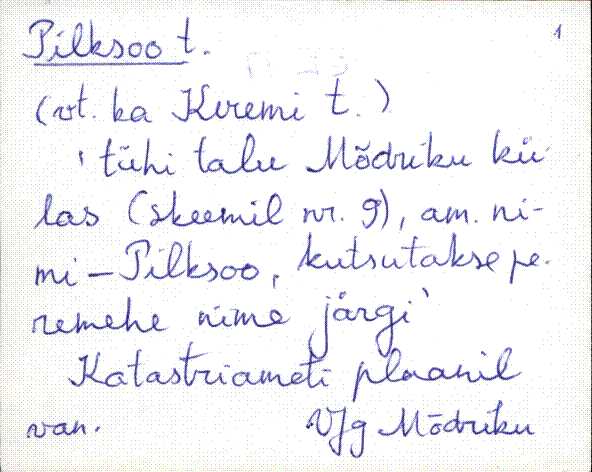 Pilksoo t. 1
(vt. ka Kuremi t.)
'tühi talu Mõdriku kü-
las (skeemil nr. 9), am. ni-
mi – Pilksoo, kutsutakse pe-
remehe nime järgi'
Katastriameti plaanil
van. VJg Mõdriku